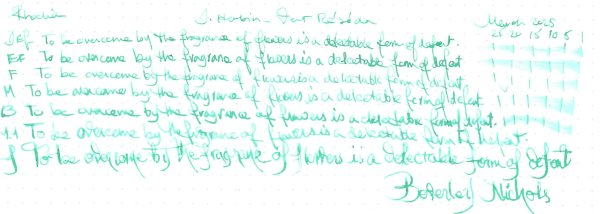 Rhodia J. Herbin - Vert Réséda March 2025
25 20 15 10 5 1
JEF To be overcome by the fragrance of flowers is a delectable form of defeat.
EF To be overcome by the fragrance of flowers is a delectable form of defeat
F To be overcome by the fragrance of flowers is a delectable form of defeat
M To be overcome by the fragrance of flowers is a delectable form of defeat.
B To be overcome by the fragrance of flowers is a delectable form of defeat.
1.1 To be overcome by the fragrance of flowers is a delectable form of defeat.
To be overcome by the fragrance of flowers is a delectable form of defeat
Beverley Nichols